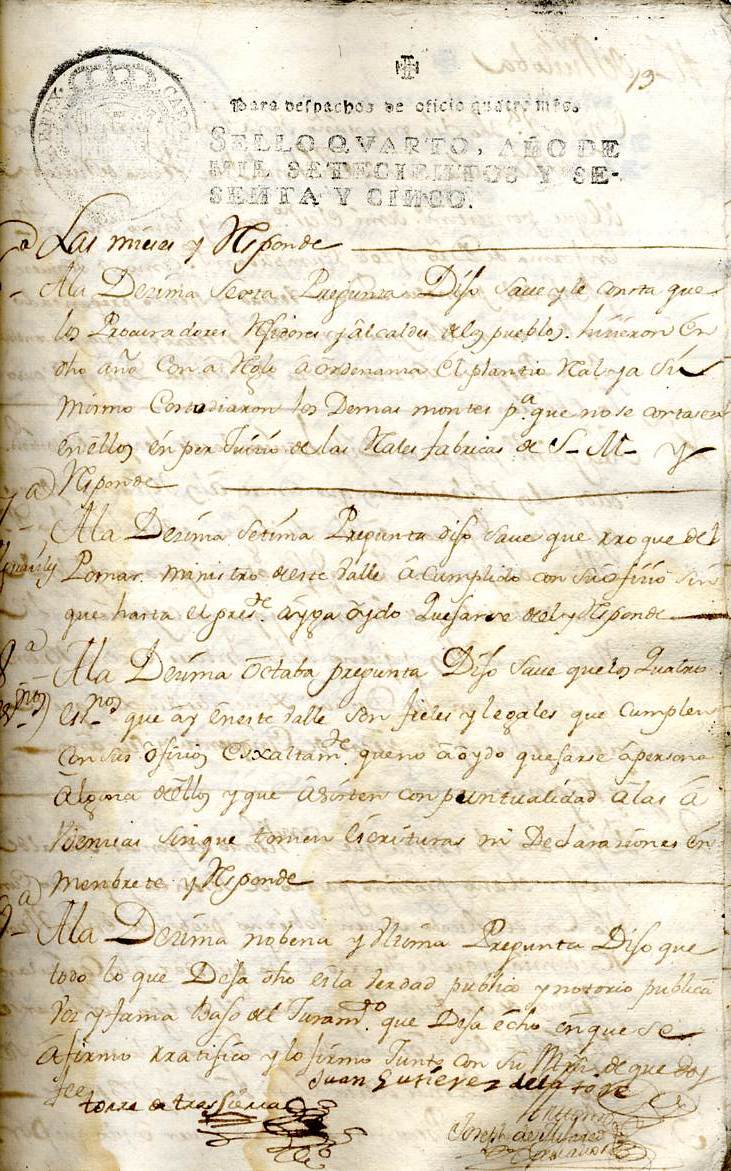 13
Para despachos de oficio quatro mrs.
SELLO QVARTO, AÑO DE
MIL SETECIENTOS Y SE-
SENTA Y CINCO.
Las mieses y Responde
Ala Dezima Sexta Pregunta Dijo Save y le consta que
los Procuradores Rejidores y Alcaldes delos pueblos hizieron en
dho año Con a Reglo a ordenanza el plantio Real ya Su
mismo Costodiaron los Demas montes pa. que no se cortase
en ellos en per Juizio de las Rales fabricas de S. M. y
Responde
7 a
Ala Dezima Setima Pregunta dijo Save que rroque del
Pomar Ministro deste Valle a Cumplido con Su ofizio sin
que hasta el preste. ayga oydo Quejarse del y Responde
8 a
Ala Dezima Octaba pregunta Dijo Save que los Quatro
esnos que ay eneste Valle Son fieles y legales que Cumplen
Con sus ofizios Esxaltamte. que no a oydo quejarse apersona
Algina dellos y que Asisten con puntualidad alas A
Viencias sin que tomen Escrituras ni Declaraziones en
Menbrete y Responde
9 a
Ala Dezima nobena y Vltima Pregunta Dijo que
todo lo que Deja dho es la Verdad publico y notorio publica
Voz y fama Bajo del Juramto. que Deja echo en que Se
afirmo rratifico y lo firmo Junto con Su Mrd. de que doy
fee
Juan Gutierez dela torre
torre de trassierra
Antemi
Joseph de